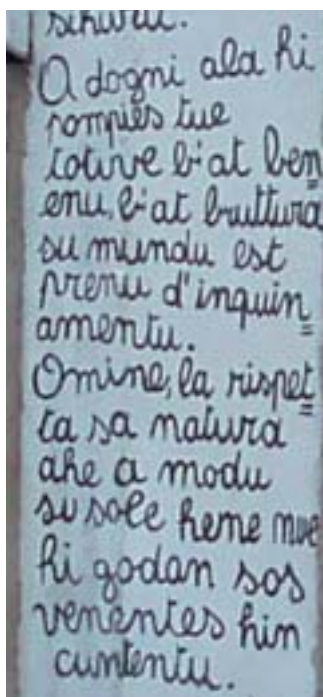 A dogni ala hi
rompies tue
totuve b'at ben=
enu, b'at bruttura
su mundu est
prenu d'inquin=
amentu.
Omine, la rispet=
ta sa natura
ahe a modu
su sole hene nue
hi godan sos
venentes hin
cuntentu.